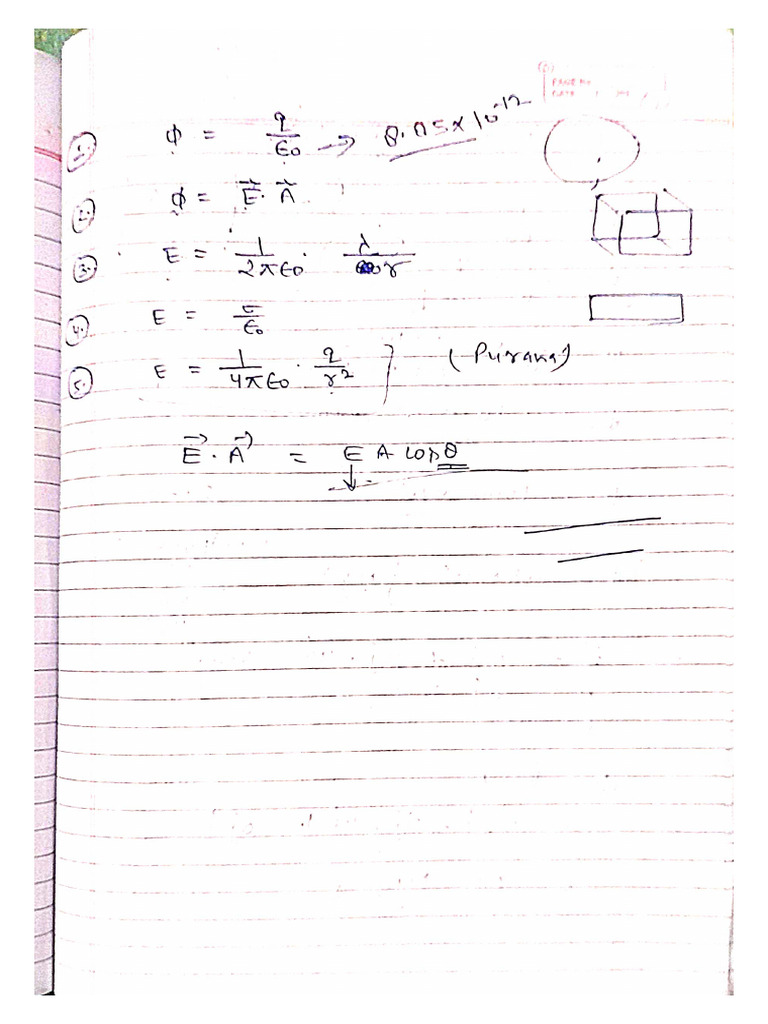 PAGE No.
DATE
1. φ = q/ε₀ → 8.85×10⁻¹²
2. φ = E⃗ · A⃗
3. E = 1/2πε₀ · λ/r
4. E = σ/ε₀
5. E = 1/4πε₀ · q/r² } (Purana)
E⃗ · A⃗ = E A cos θ